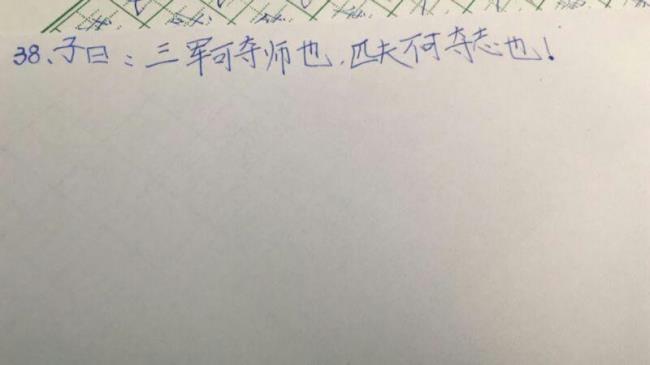 38、子曰：三军可夺师也，匹夫何夺志也！